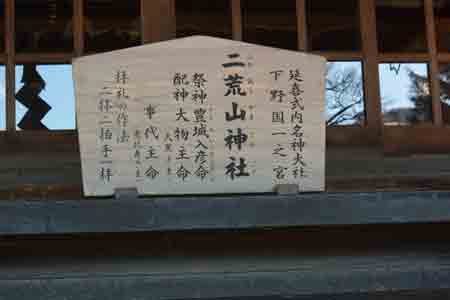 延喜式内名神大社
下野国一之宮
二荒山神社
祭神 豊城入彦命
配神 大物主命
事代主命
拝礼の作法
二拝二拍手一拝